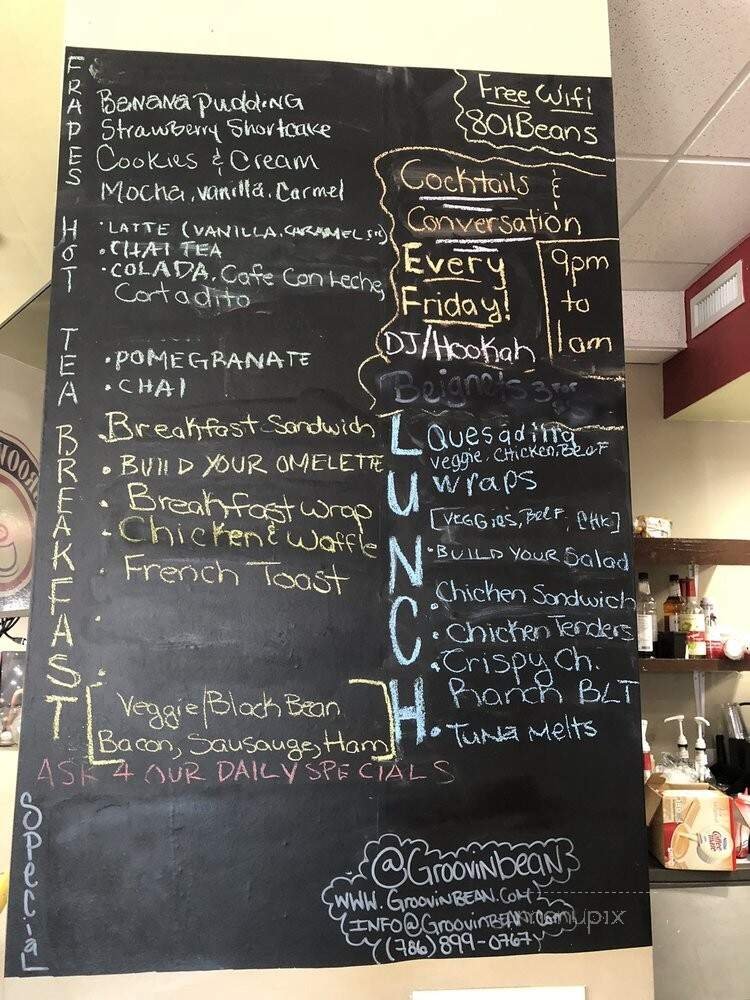 FRAPES
Banana pudding
Strawberry Shortcake
Cookies & Cream
Mocha, vanilla, Carmel
HOT
• LATTE (VANILLA, CARAMEL
• CHAI TEA
• COLADA, Cafe Con Leche,
Cortadito
TEA
• POMEGRANATE
• CHAI
BREAKFAST
• Breakfast Sandwich
• BUILD YOUR OMELETTE
• Breakfast wrap
• Chicken & waffle
• French Toast
[Veggie/Black Bean
Bacon, Sausauge, Ham]
ASK 4 OUR DAILY SPECIALS
Free Wifi
801Beans
Cocktails &
Conversation
Every
Friday!
9pm
to
1am
DJ/Hookah
Beignets
LUNCH
Quesadilla
veggie, Chicken, Beef
wraps
[VEGGIES, BEEF, CHK]
• BUILD YOUR Salad
• Chicken Sandwich
• Chicken Tenders
• Crispy Ch.
Ranch BLT
• Tuna Melts
@Groovinbean
WWW.GROOVINBEAN.COM
INFO@GROOVINBEAN.COM
(786) 899-0767
menupix